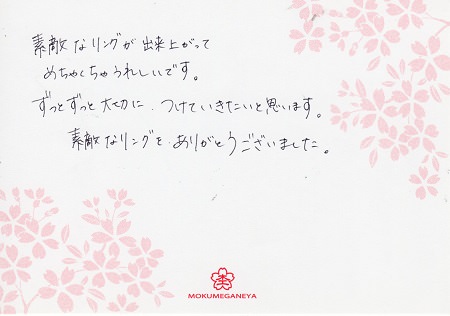 素敵なリングが出来上がって
めちゃくちゃうれしいです。
ずっとずっと大切に、つけていきたいと思います。
素敵なリングを、ありがとうございました。
MOKUMEGANEYA